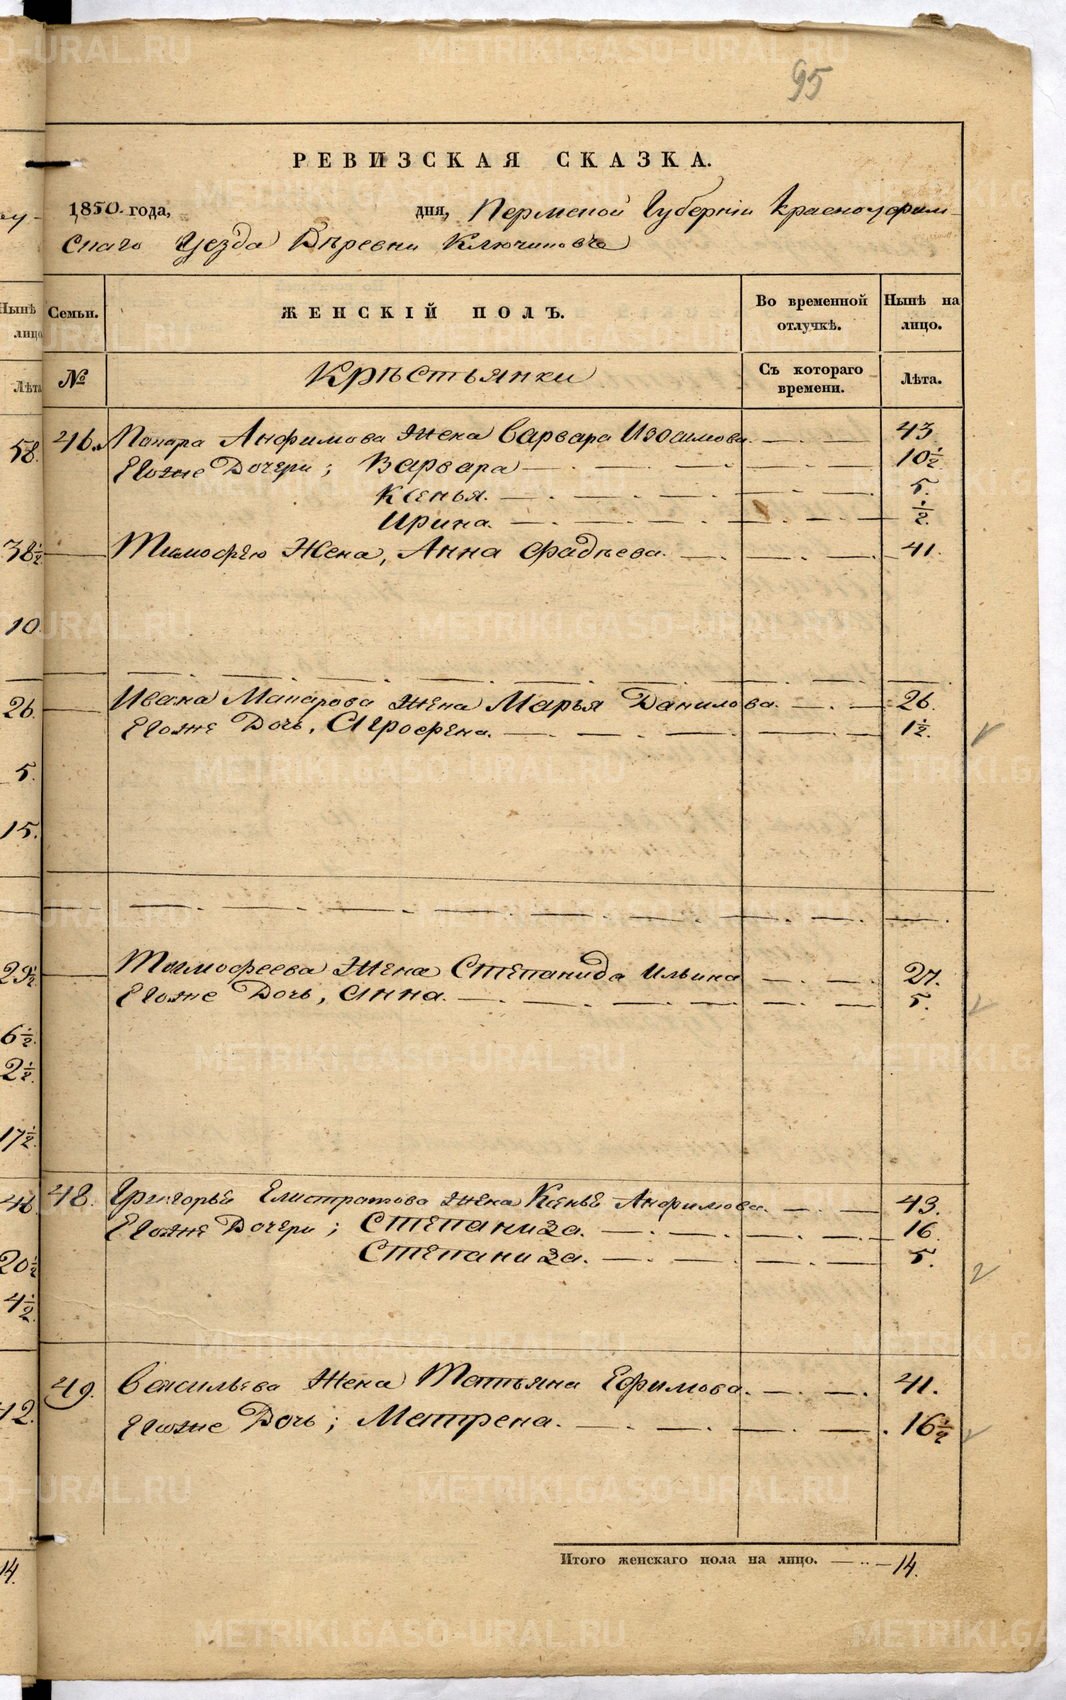 95
РЕВИЗСКАЯ СКАЗКА.
1850. года, дня, Пермской Губерніи Красноуфим-
скаго Уезда Деревни Ключиковъ
Нынѣ лицо
Семьи. ЖЕНСКІЙ ПОЛЪ. Во временной отлучкѣ. Нынѣ на лицо.
Лѣта № Крѣстьянки Съ котораго времени. Лѣта.
58. 46. Макара Анфимова Жена Варвара Изосимова. 43.
Евоже Дочери; Варвара 10½
Ксенья. 5.
Ирина. ½.
38½ Тимофѣю Жена, Анна Фадѣева. 41.
10
26. Ивана Макарова Жена Марья Данилова. 26.
Евоже Дочь, Агрофена. 1½.
5.
15.
29½ Тимофеева Жена Степанида Ильина 27.
Евоже Дочь, Анна. 5.
6½
2½
17½
48. Григорья Елистратова Жена Ксенья Анфимова. 43.
Евоже Дочери; Степанида. 16.
20½ Степанида. 5.
4½
49. Васильева Жена Татьяна Ефимова. 41.
12. Евоже Дочь; Матрена. 16½
14. Итого женскаго пола на лицо. 14.
METRIKI.GASO-URAL.RU